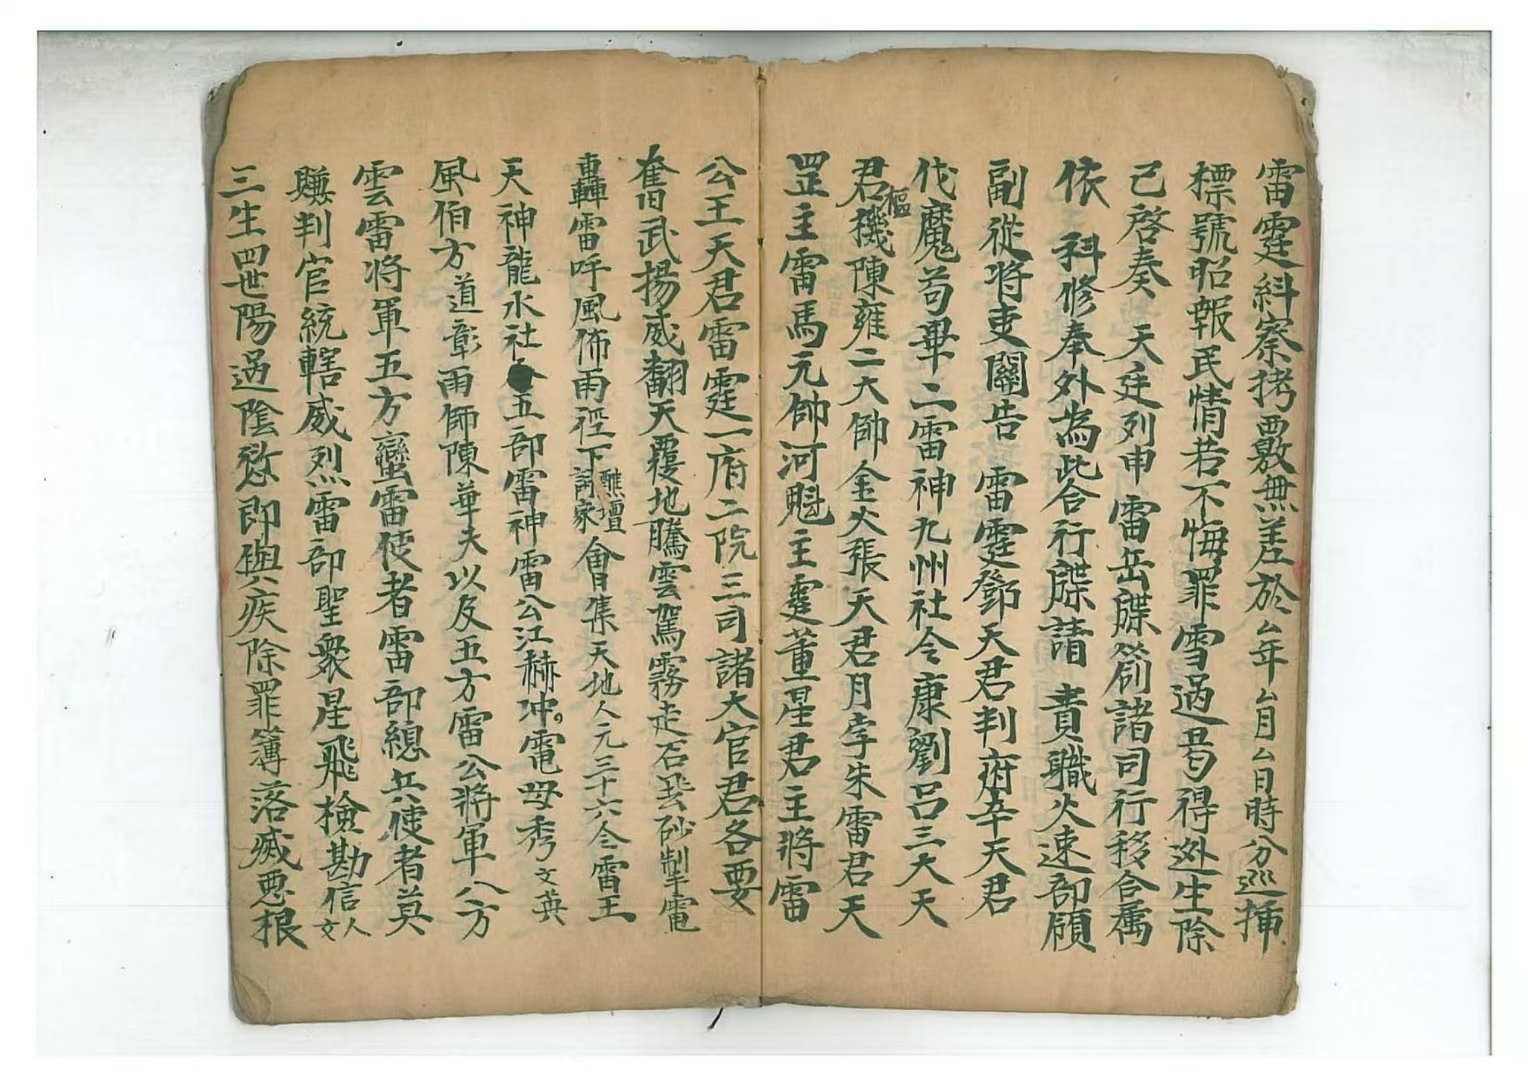 雷霆糾察拷覈無差於厶年厶月厶日時分巡揷
標號昭報民情若不悔罪雪過曷得迯生除
己啓奏 天廷列申雷岳牒箚諸司行移合属
依 科修奉外為此合行牒請 貴職火速部領
副從將吏關告 雷霆鄧天君判府辛天君
伐魔苟畢二雷神九州社令康劉呂三大天
君樞機陳雍二大帥金火張天君月孛朱雷君天
罡主雷馬元帥河魁主霆董星君主將雷
公王天君雷霆一府二院三司諸大官君各要
奮武揚威翻天覆地騰雲駕霧走石㠯砂掣電
轟雷呼風佈雨徑下醮壇詞家會集天地人元三十六令雷王
天神龍水社令五部雷神雷公江赫冲電母秀文英
風伯方道彰雨師陳華夫以及五方雷公將軍八方
雲雷將軍五方蠻雷使者雷部總兵使者莫
賺判官統轄威烈雷部聖衆星飛檢勘信人文
三生四世陽過陰愆即與六疾除罪簿落滅惡根